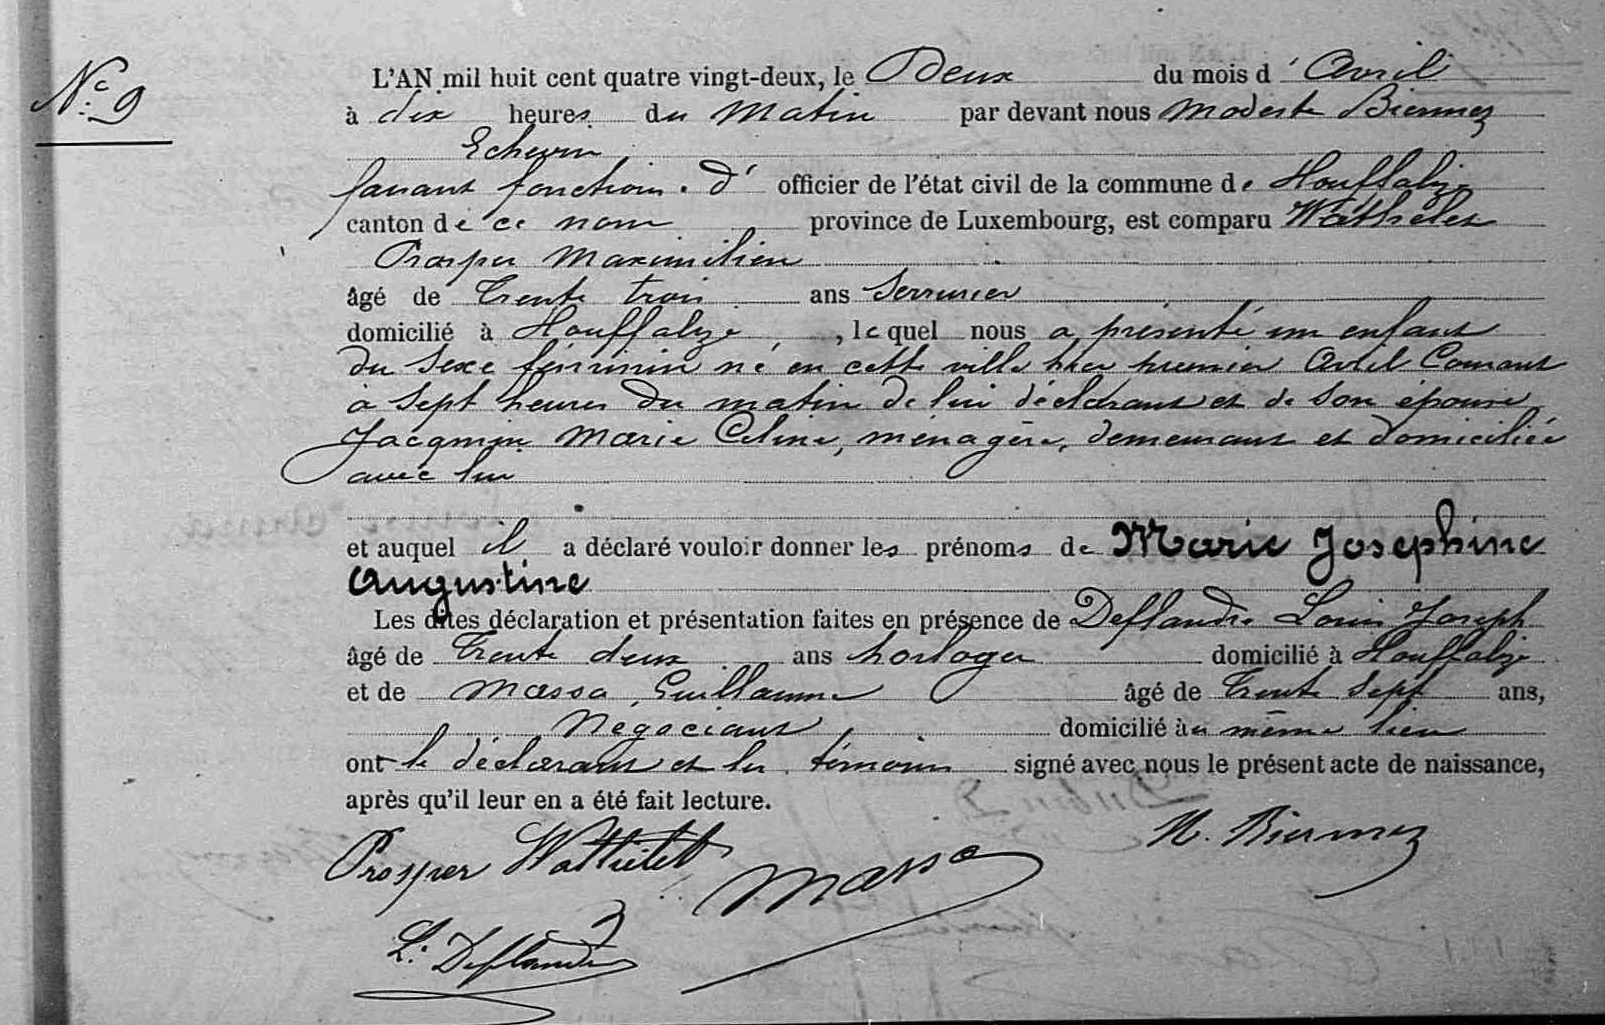 N.º 9
L'AN mil huit cent quatre vingt-deux, le Deux du mois d'Avril
à dix heures du Matin par devant nous Modeste Biermez
Echevin
faisant fonctions d' officier de l'état civil de la commune de Houffalize
canton de ce nom province de Luxembourg, est comparu Wathelet
Prosper Maximilien
âgé de Trente trois ans Serrurier
domicilié à Houffalize, lequel nous a présenté un enfant
du sexe féminin né en cette ville hier premier Avril Courant
à sept heures du matin de lui déclarant et de son épouse
Jacqmin Marie Celine, ménagère, demeurant et domiciliée
avec lui
et auquel il a déclaré vouloir donner les prénoms de Marie Josephine
Augustine
Les dites déclaration et présentation faites en présence de Deflandre Louis Joseph
âgé de Trente deux ans horloger domicilié à Houffalize
et de Massa, Guillaume âgé de Trente Sept ans,
Négociant domicilié au même lieu
ont le déclarant et les témoins signé avec nous le présent acte de naissance,
après qu'il leur en a été fait lecture.
Prosper Wathelet Massa M. Biermez
L. Deflandre